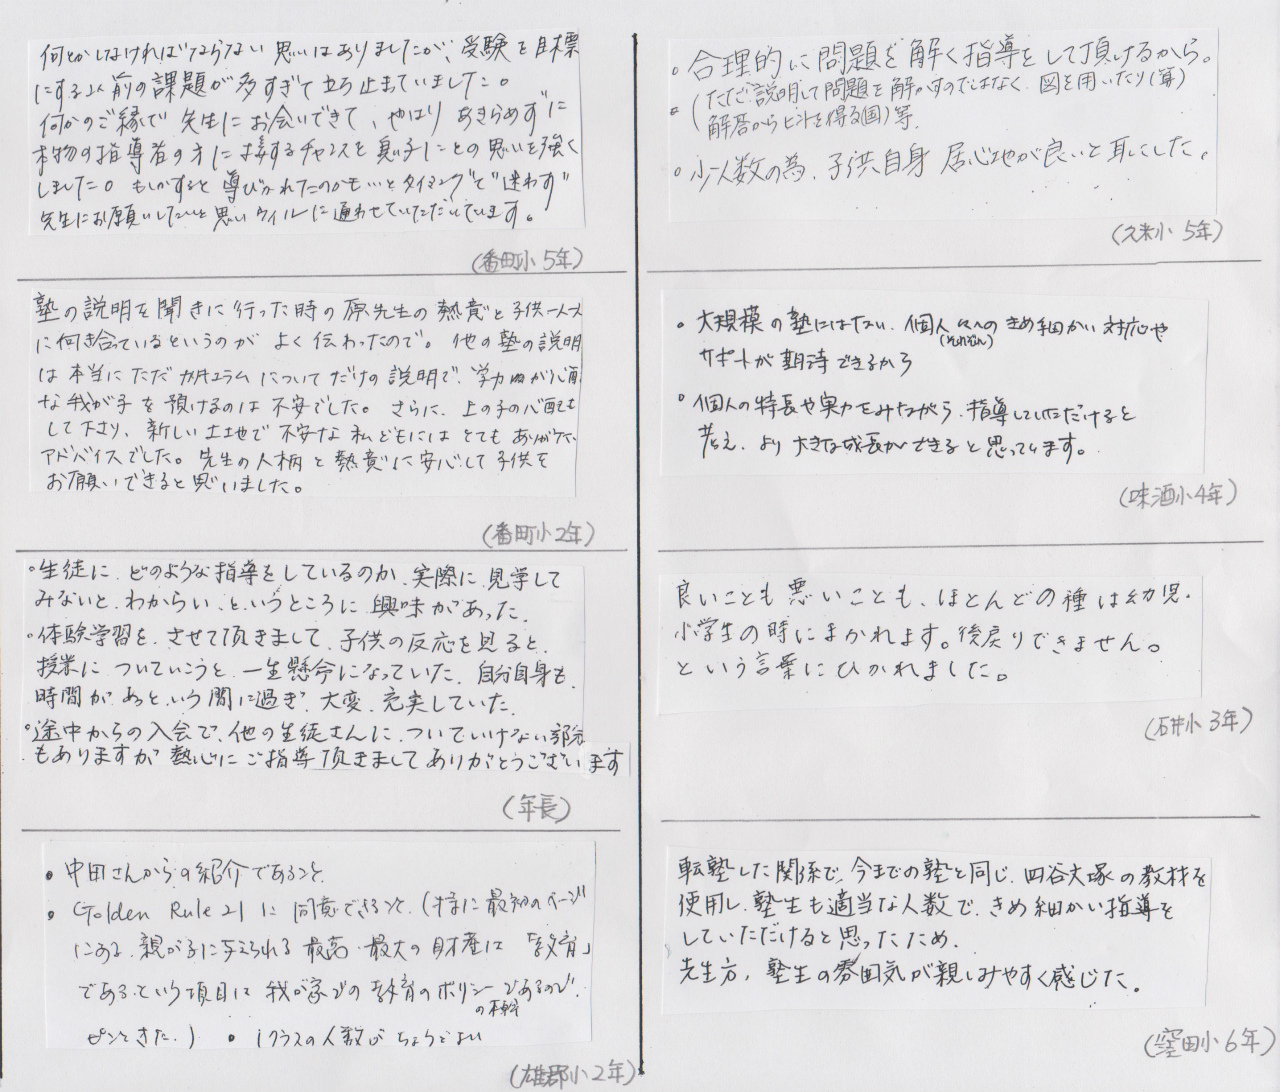 何とかしなければならない思いはありましたが、受験を目標
にする以前の課題が多すぎて立ち止まっていました。
何かのご縁で先生にお会いできて、やはりあきらめずに
本物の指導者の方に接するチャンスを息子にとの思いを強く
しました。もしかすると導びかれたのかも…とタイミングで"迷わず"
先生にお願いしたいと思いウィルに通わせていただいています。
(番町小5年)
塾の説明を聞きに行った時の原先生の熱意と子供一人一人
に向き合っているというのがよく伝わったので。他の塾の説明
は本当にただカリキュラムについてだけの説明で、学力面が心配
な我が子を預けるのは不安でした。さらに、上の子の心配も
して下さり、新しい土地で不安な私どもにはとてもありがたい
アドバイスでした。先生の人柄と熱意に安心して子供を
お願いできると思いました。
(番町小2年)
・生徒に、どのような指導をしているのか、実際に見学して
みないと、わからい、というところに興味があった。
・体験学習を、させて頂きまして、子供の反応を見ると、
授業に ついていこうと、一生懸命になっていた。自分自身も、
時間が、あっという間に過ぎ、大変、充実していた。
・途中からの入会で、他の生徒さんに、ついていけない部分
もありますが 熱心にご指導頂きまして ありがとうございます
(年長)
・中田さんからの紹介であること
・Golden Rule 21に同意できること、(特に最初のページ
にある、親が子に与えられる最高・最大の財産は「教育」
である、という項目は 我が家での教育のポリシーの根幹であるので、
ピンときた。) ・1クラスの人数がちょうどよい
(雄郡小2年)
・合理的に問題を解く指導をして頂けるから。
・(ただ説明して問題を解かすのではなく、図を用いたり(算)
解答からヒントを得る(国)等。
・少人数の為、子供自身 居心地が良いと耳にした。
(久米小 5年)
・大規模の塾にはない、個人々々(それぞれ)へのきめ細かい対応や
サポートが期待できるから
・個人の特長や実力をみながら、指導していただけると
考え、より大きな成長ができると思っています。
(味酒小4年)
良いことも悪いことも、ほとんどの種は幼児・
小学生の時にまかれます。後戻りできません。
という言葉にひかれました。
(石井小 3年)
転塾した関係で、今までの塾と同じ、四谷大塚の教材を
使用し、塾生も適当な人数で、きめ細かい指導を
していただけると思ったため。
先生方、塾生の雰囲気が親しみやすく感じた。
(窪田小6年)